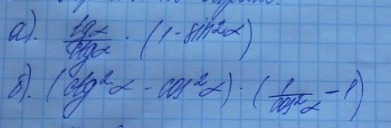 а). tgα/ctgα · (1 - sin²α)
б). (ctg²α - cos²α) · (1/cos²α - 1)